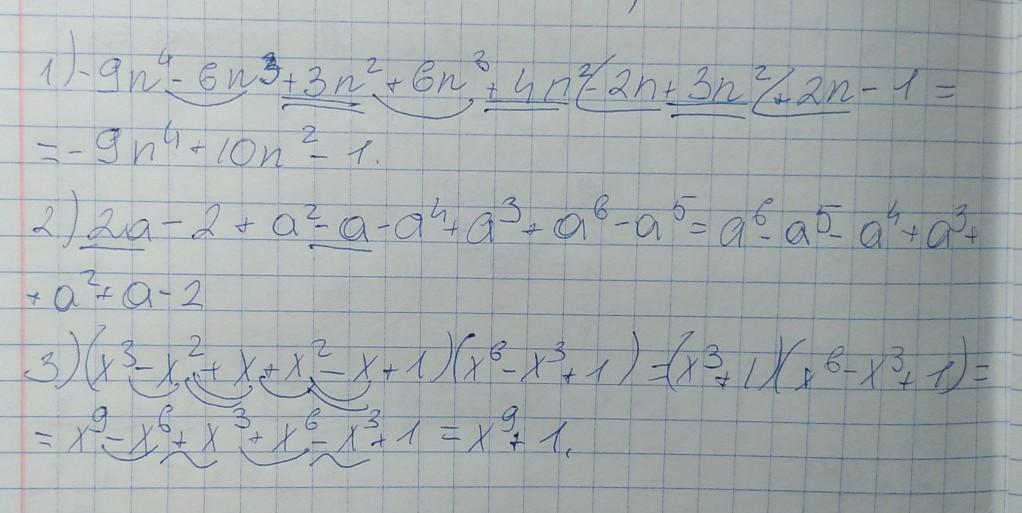 1) -9n⁴ - 6n³ + 3n² + 6n³ + 4n² - 2n + 3n² + 2n - 1 =
= -9n⁴ + 10n² - 1.
2) 2a - 2 + a² - a - a⁴ + a³ + a⁶ - a⁵ = a⁶ - a⁵ - a⁴ + a³ +
+ a² + a - 2
3) (x³ - x² + x + x² - x + 1)(x⁶ - x³ + 1) = (x³ + 1)(x⁶ - x³ + 1) =
= x⁹ - x⁶ + x³ + x⁶ - x³ + 1 = x⁹ + 1.